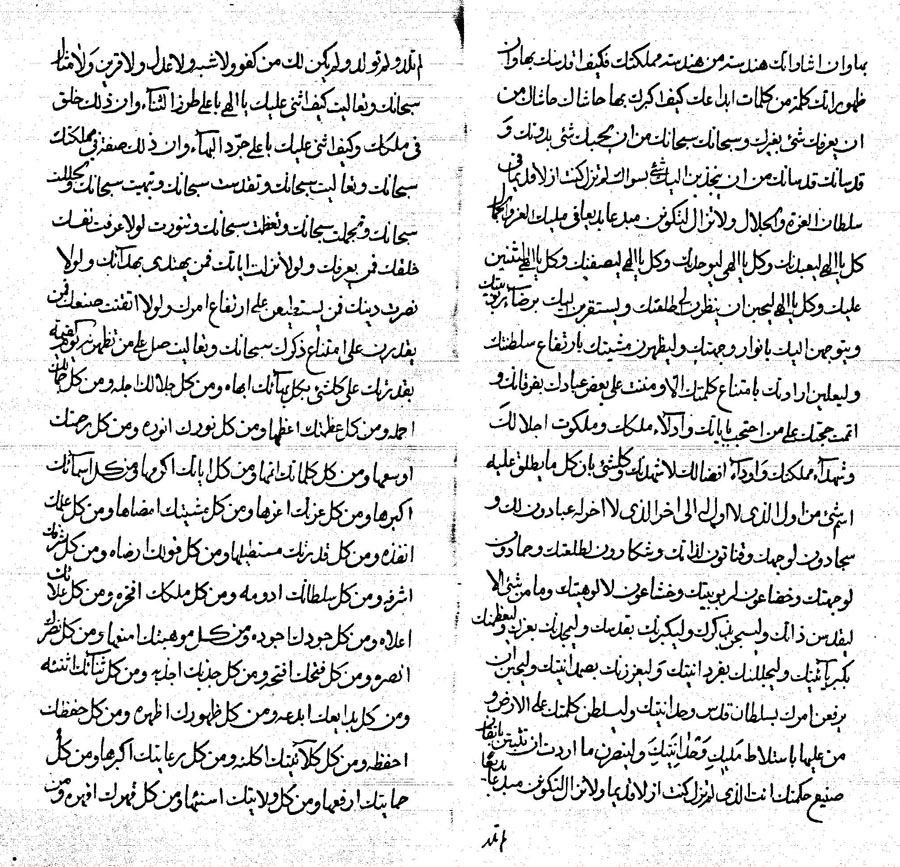 بها وان اشاراتك هندسة من هندسة مملكتك فكيف اقدسك بها وان
ظهوراتك كلمة من كلمات ابداعك كيف اكبرك بها حاشاك حاشاك من
ان يعرفك شئ بغيرك وسبحانك سبحانك من ان يحبك شئ بدونك و
قدسانك قدسانك من ان يتخذن اليك شئ سواك لم تزل كنت ازلا قديما في
سلطان العزة والجلال ولا تزال لتكونن مبدعا بديعا في مليك العز والجمال
كل يا الهي ليعبدنك وكل يا الهي ليوحدنك وكل يا الهي ليصفنك وكل يا الهي ليثنين
عليك وكل يا الهي ليحبن ان ينظرن الى طلعتك ويستقرن لديك برضاء ربوبيتك
ويتوجهن اليك بانوار وجهتك وليظهرن مشيتك بارتفاع سلطنتك
وليعلين ارادتك بامتناع كلمتك الا ومننت على بعض عبادك بفرقانك و
اتممت حجتك على من احتجب باياتك وادلاء ملكك وملكوت اجلالك
وشهداء مملكتك واوداء افضالك لاشهدنك وكلشئ بان كل ما يطلق عليه
اسم شئ من اول الذي لا اول له الى اخر الذي لا اخر له عبادون لك و
سجادون لوجهك وقناتون لذاتك وشكارون لطلعتك وحمادون
لوجهتك وخضاعون لربوبيتك وخشاعون لالوهيتك وما من شئ الا
ليقدسن ذاتك وليسبحن بذكرك وليكبرنك بقدسك وليجلنك بعزك وليعظمنك
بكبريائيتك وليجللنك بفردانيتك وليعززنك بصمدانيتك وليحبن ان
يرفعن امرك بسلطان قدس وحدانيتك وليسلطن كلمتك على الارض و
من عليها باستلاط مليك وحدانيتك ولينصرن ما اردت ان تثبتن باتقان
صنيع حكمتك انت الذي لم تزل كنت ازلا قديما ولا تزال لتكونن مبدعا بديعا
لم تلد
لم تلد ولم تولد ولم يكن لك من كفو ولا شبه ولا عدل ولا قرين ولا مثال
سبحانك وتعاليت كيف اثني عليك يا الهي باعلى طرز الثناء وان ذلك خلق
في ملكك وكيف اثني عليك باعلى جرد البهاء وان ذلك صفة في مملكتك
سبحانك وتعاليت سبحانك وتقدست سبحانك وتبهيت سبحانك وتجللت
سبحانك وتجملت سبحانك وتعظمت سبحانك وتنورت لولا عرفت نفسك
خلقك فمن يعرفك ولولا نزلت اياتك فمن يهتدي بهدايتك ولولا
نصرت دينك فمن يستطيعن على ارتفاع امرك ولولا اتقنت صنعك فمن
يقدرن على امتناع ذكرك سبحانك وتعاليت صل على من تظهرنه يوم القيمة
بقدرتك على كلشئ بكل بهائك ابهاه ومن كل جلالك اجله ومن كل جمالك
اجمله ومن كل عظمتك اعظمها ومن كل نورك انوره ومن كل رحمتك
اوسعها ومن كل كلماتك اتمها ومن كل اياتك اكرمها ومن كل اسمائك
اكبرها ومن كل عزتك اعزها ومن كل مشيتك امضاها ومن كل علمك
انفذه ومن كل قدرتك مستطيلها ومن كل قولك ارضاه ومن كل شرفك
اشرفه ومن كل سلطانك ادومه ومن كل ملكك افخره ومن كل علائك
اعلاه ومن كل جودك اجوده ومن كل موهبتك امنعها ومن كل نصرك
انصره ومن كل فتحك افتحه ومن كل جذبك اجذبه ومن كل ثنائك اثنيه
ومن كل بدايعك ابدعه ومن كل ظهورك اظهره ومن كل حفظك
احفظه ومن كل كلائتك اكلئه ومن كل رعايتك اكبرها ومن كل
حمايتك ارفعها ومن كل ولايتك اسنيها ومن كل قهرك اقهره ومن